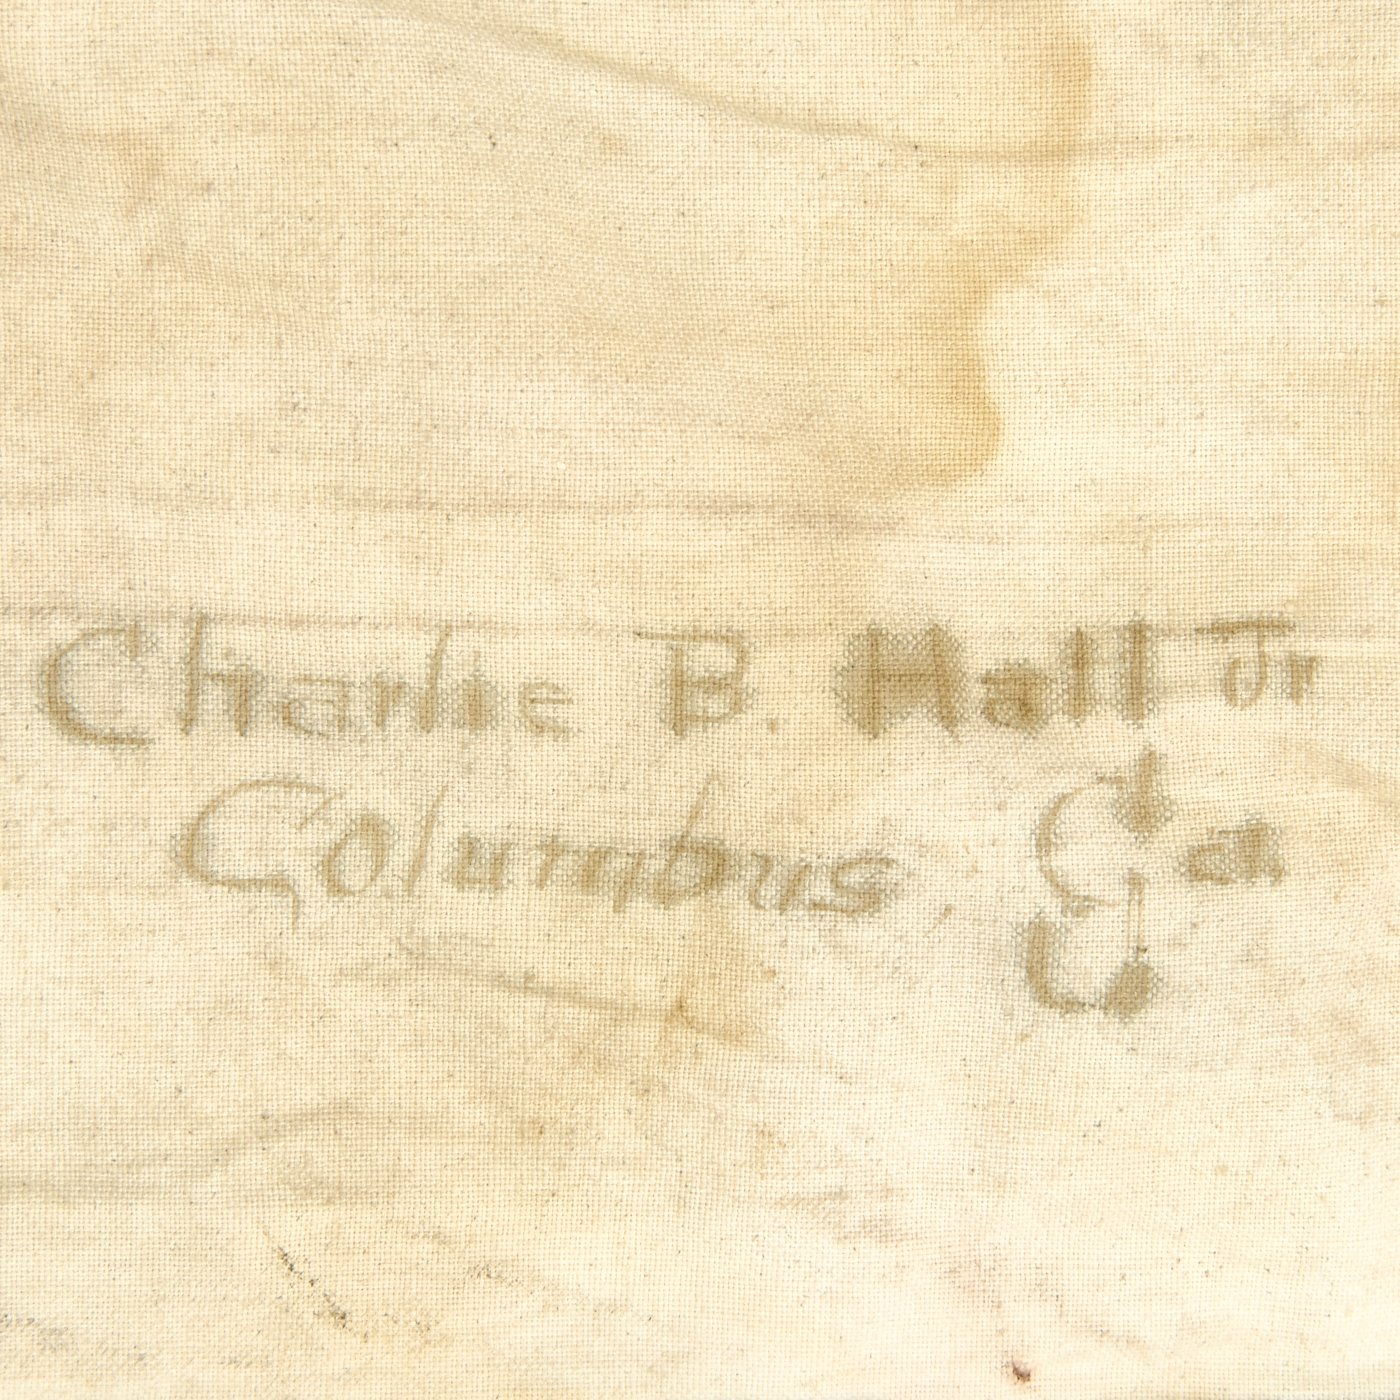 Charlie B. Hall Jr
Columbus, Ga